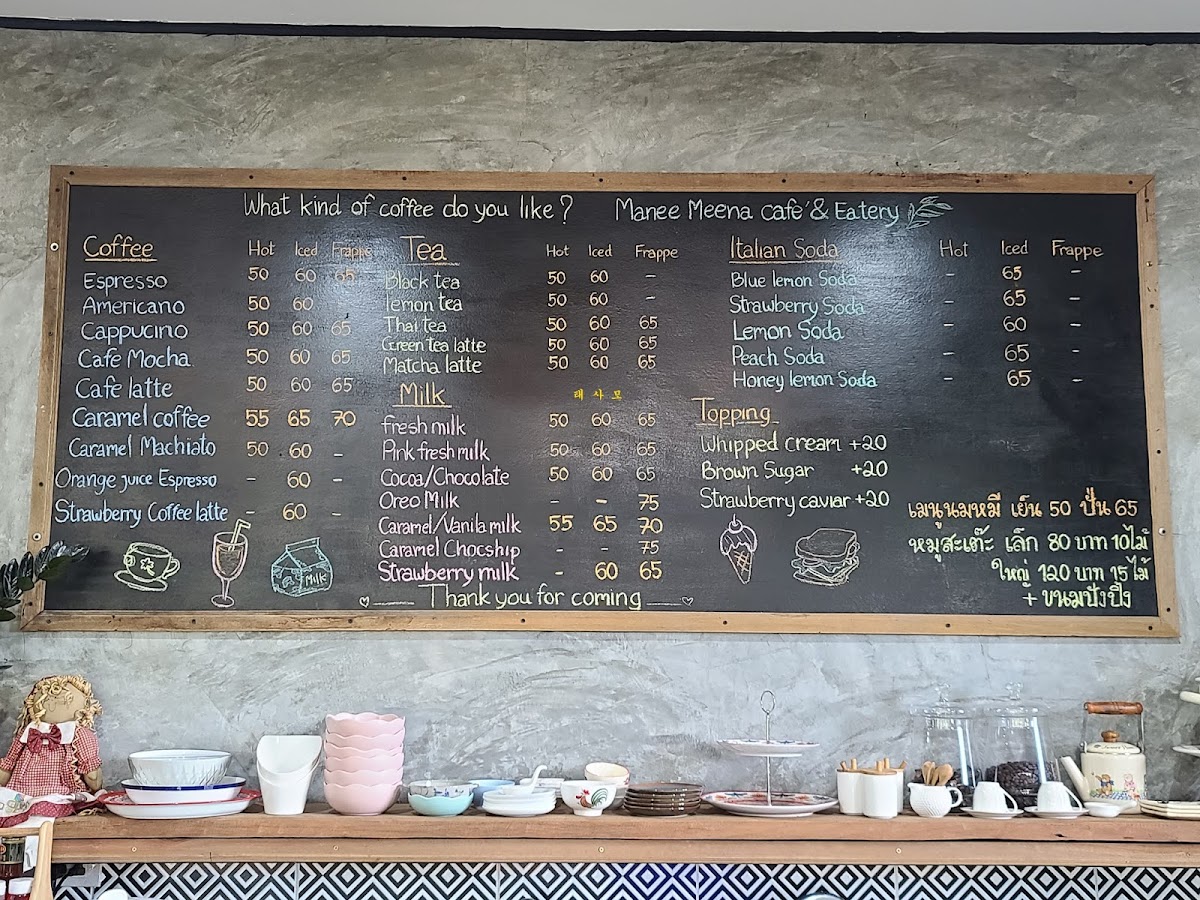 What kind of coffee do you like? Manee Meena cafe' & Eatery
Coffee Hot Iced Frappe
Espresso 50 60 65
Americano 50 60
Cappucino 50 60 65
Cafe Mocha 50 60 65
Cafe latte 50 60 65
Caramel coffee 55 65 70
Caramel Machiato 50 60 -
Orange juice Espresso - 60 -
Strawberry Coffee latte - 60 -
MILK
Tea Hot Iced Frappe
Black tea 50 60 -
lemon tea 50 60 -
Thai tea 50 60 65
Green tea latte 50 60 65
Matcha latte 50 60 65
태사모
Milk
fresh milk 50 60 65
Pink fresh milk 50 60 65
Cocoa/Chocolate 50 60 65
Oreo Milk - - 75
Caramel/Vanila milk 55 65 70
Caramel Chocship - - 75
Strawberry milk - 60 65
Thank you for coming
Italian Soda Hot Iced Frappe
Blue lemon Soda - 65 -
Strawberry Soda - 65 -
Lemon Soda - 60 -
Peach Soda - 65 -
Honey lemon Soda - 65 -
Topping
Whipped cream +20
Brown Sugar +20
Strawberry caviar +20
เมนูนมหมี เย็น 50 ปั่น 65
หมูสะเต๊ะ เล็ก 80 บาท 10ไม้
ใหญ่ 120 บาท 15ไม้
+ ขนมปังปิ้ง